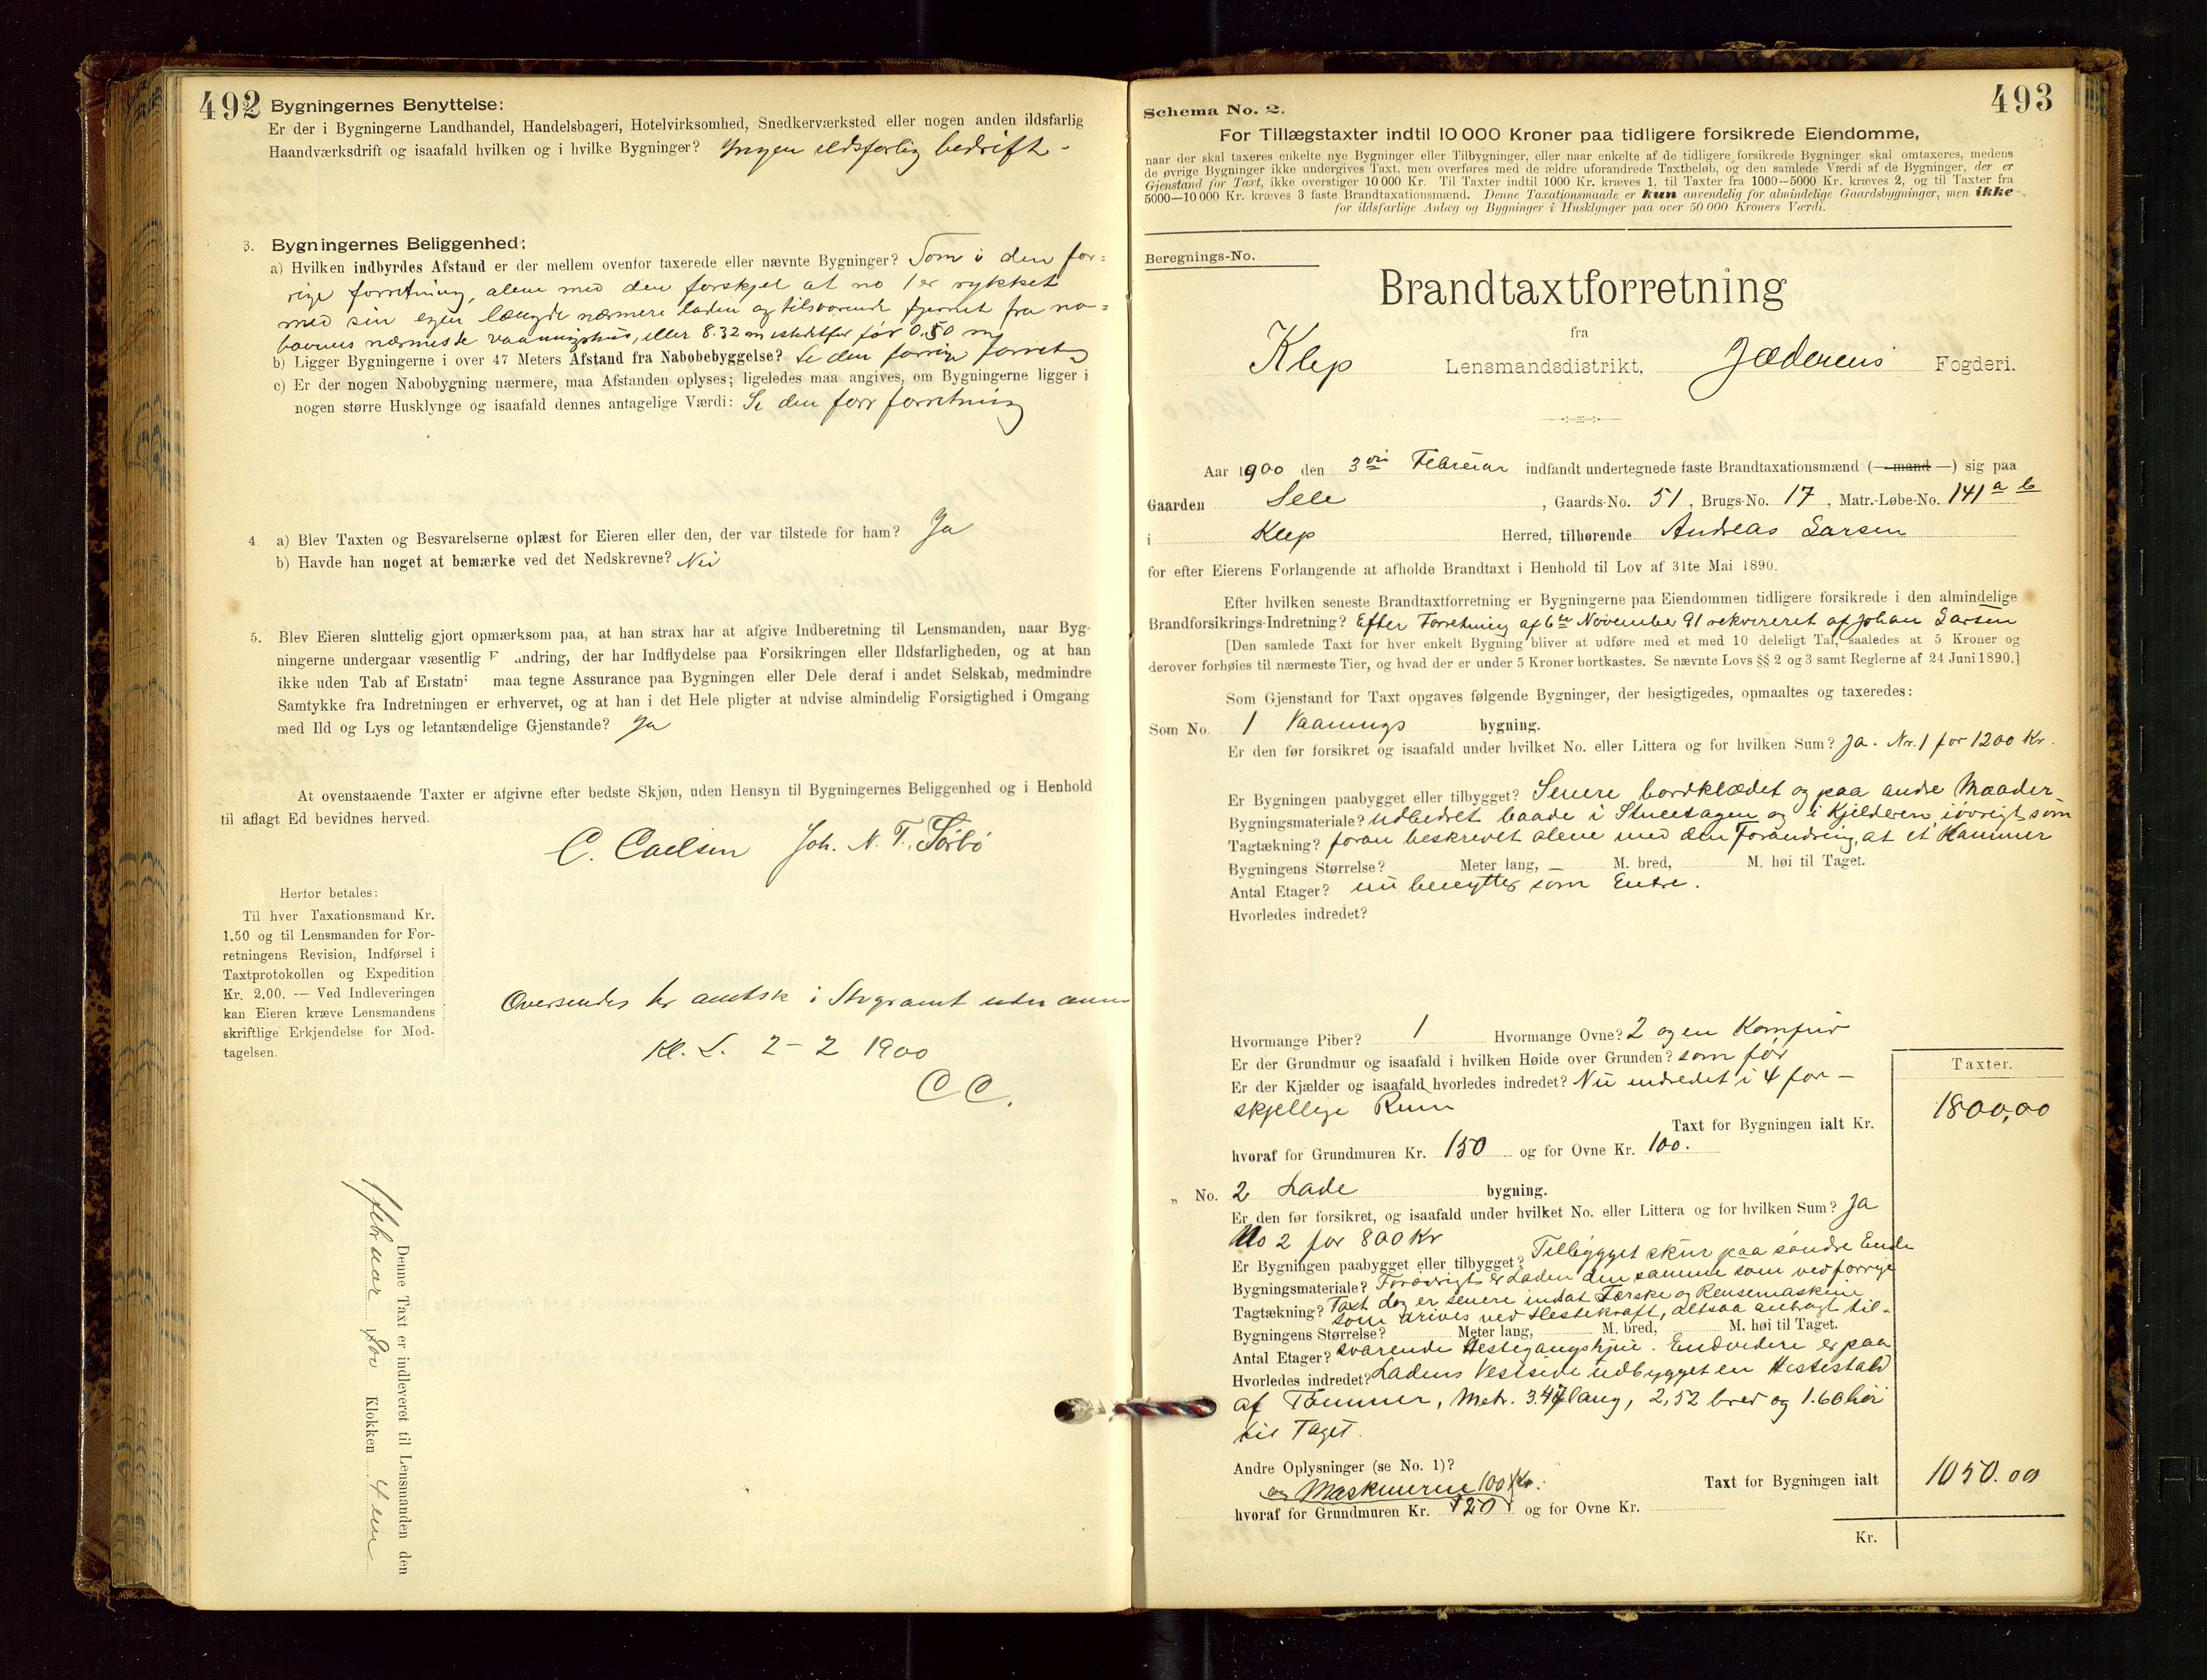 492
Bygningernes Benyttelse:
Er der i Bygningerne Landhandel, Handelsbageri, Hotelvirksomhed, Snedkerværksted eller nogen anden ildsfarlig
Haandværksdrift og isaafald hvilken og i hvilke Bygninger? Ingen ildsfarlig bedrift -
3. Bygningernes Beliggenhed:
a) Hvilken indbyrdes Afstand er der mellem ovenfor taxerede eller nævnte Bygninger? Som i den for=
rige forretning, alene med den forskjel at no 1 er rykket
med sin egen længde nærmere laden og tilsvarende fjernet fra na=
boens nærmeste vaaningshus, eller 8.32 m istedetfor før 0.50 m
b) Ligger Bygningerne i over 47 Meters Afstand fra Nabobebyggelse? Se den forrige forret
c) Er der nogen Nabobygning nærmere, maa Afstanden oplyses; ligeledes maa angives, om Bygningerne ligger i
nogen større Husklynge og isaafald dennes antagelige Værdi: Se den forr forretning
4. a) Blev Taxten og Besvarelserne oplæst for Eieren eller den, der var tilstede for ham? Ja
b) Havde han noget at bemærke ved det Nedskrevne? Nei
5. Blev Eieren sluttelig gjort opmærksom paa, at han strax har at afgive Indberetning til Lensmanden, naar Byg-
ningerne undergaar væsentlig F andring, der har Indflydelse paa Forsikringen eller Ildsfarligheden, og at han
ikke uden Tab af Erstatn maa tegne Assurance paa Bygningen eller Dele deraf i andet Selskab, medmindre
Samtykke fra Indretningen er erhvervet, og at han i det Hele pligter at udvise almindelig Forsigtighed i Omgang
med Ild og Lys og letantændelige Gjenstande? Ja
At ovenstaaende Taxter er afgivne efter bedste Skjøn, uden Hensyn til Bygningernes Beliggenhed og i Henhold
til aflagt Ed bevidnes herved.
C. Caelsen Joh. N. T. Førbø
Herfor betales:
Til hver Taxationsmand Kr.
1.50 og til Lensmanden for For-
retningens Revision, Indførsel i
Taxtprotokollen og Expedition
Kr. 2.00. — Ved Indleveringen
kan Eieren kræve Lensmandens
skriftlige Erkjendelse for Mod-
tagelsen.
Oversendes hr amtsk i Stvgramt uden anm
Kl. L. 2-2 1900
CC.
Denne Taxt er indleveret til Lensmanden den
1 februar 1900 Klokken 4 em
493
Schema No. 2.
For Tillægstaxter indtil 10 000 Kroner paa tidligere forsikrede Eiendomme,
naar der skal taxeres enkelte nye Bygninger eller Tilbygninger, eller naar enkelte af de tidligere forsikrede Bygninger skal omtaxeres, medens
de øvrige Bygninger ikke undergives Taxt, men overføres med de ældre uforandrede Taxtbeløb, og den samlede Værdi af de Bygninger, der er
Gjenstand for Taxt, ikke overstiger 10 000 Kr. Til Taxter indtil 1000 Kr. kræves 1, til Taxter fra 1000—5000 Kr. kræves 2, og til Taxter fra
5000—10 000 Kr. kræves 3 faste Brandtaxationsmænd. Denne Taxationsmaade er kun anvendelig for almindelige Gaardsbygninger, men ikke
for ildsfarlige Anlæg og Bygninger i Husklynger paa over 50 000 Kroners Værdi.
Beregnings-No.
Brandtaxtforretning
fra
Klep Lensmandsdistrikt, Jæderens Fogderi.
Aar 1900 den 3die Februar indfandt undertegnede faste Brandtaxationsmænd (— mand —) sig paa
Gaarden Sele, Gaards-No. 51, Brugs-No. 17, Matr.-Løbe-No. 141 a b
i Klep Herred, tilhørende Andreas Larsen
for efter Eierens Forlangende at afholde Brandtaxt i Henhold til Lov af 31te Mai 1890.
Efter hvilken seneste Brandtaxtforretning er Bygningerne paa Eiendommen tidligere forsikrede i den almindelige
Brandforsikrings-Indretning? Efter Forretning af 6te November 91 rekvireret af Johan Larsen
[Den samlede Taxt for hver enkelt Bygning bliver at udføre med et med 10 deleligt Tal, saaledes at 5 Kroner og
derover forhøies til nærmeste Tier, og hvad der er under 5 Kroner bortkastes. Se nævnte Lovs §§ 2 og 3 samt Reglerne af 24 Juni 1890.]
Som Gjenstand for Taxt opgaves følgende Bygninger, der besigtigedes, opmaaltes og taxeredes:
Som No. 1 Vaanings bygning.
Er den før forsikret og isaafald under hvilket No. eller Littera og for hvilken Sum? Ja. Nr. 1 for 1200 Kr.
Er Bygningen paabygget eller tilbygget? Senere bordklædet og paa andre Maader
Bygningsmateriale? udbedret baade i Stueetagen og i Kjelderen, iøvrigt som
Tagtækning? foran beskrevet alene med den Forandring, at et Kammer
Bygningens Størrelse? Meter lang, — M. bred, M. høi til Taget.
Antal Etager? nu benyttes som Entre.
Hvorledes indredet?
Hvormange Piber? 1 Hvormange Ovne? 2 og en Komfur
Er der Grundmur og isaafald i hvilken Høide over Grunden? som før
Er der Kjælder og isaafald hvorledes indredet? Nu indredet i 4 for-
skjellige Rum
Taxter.
Taxt for Bygningen ialt Kr. 1800,00
hvoraf for Grundmuren Kr. 150 og for Ovne Kr. 100.
" No. 2 Lade bygning.
Er den før forsikret, og isaafald under hvilket No. eller Littera og for hvilken Sum? Ja
No 2 for 800 Kr
Er Bygningen paabygget eller tilbygget? Tilbygget skur paa søndre Ende
Bygningsmateriale? Forøvrigt er Laden den samme som ved forrige
Tagtækning? Taxt dog er senere indsat Tærske og Rensemaskine
som drives ved Hestekraft, altsaa anbragt til-
Bygningens Størrelse? Meter lang, M. bred, M. høi til Taget.
Antal Etager? svarende Hestegangshjul. Endvidere er paa
Hvorledes indredet? Ladens Vestside udbygget en Hestestald
af Tømmer, Metr. 3.47 lang, 2,52 bred og 1.60 høi
til Taget.
Andre Oplysninger (se No. 1)?
og Maskinerne 100 Kr. Taxt for Bygningen ialt 1050.00
hvoraf for Grundmuren Kr. 120 og for Ovne Kr.
Kr.